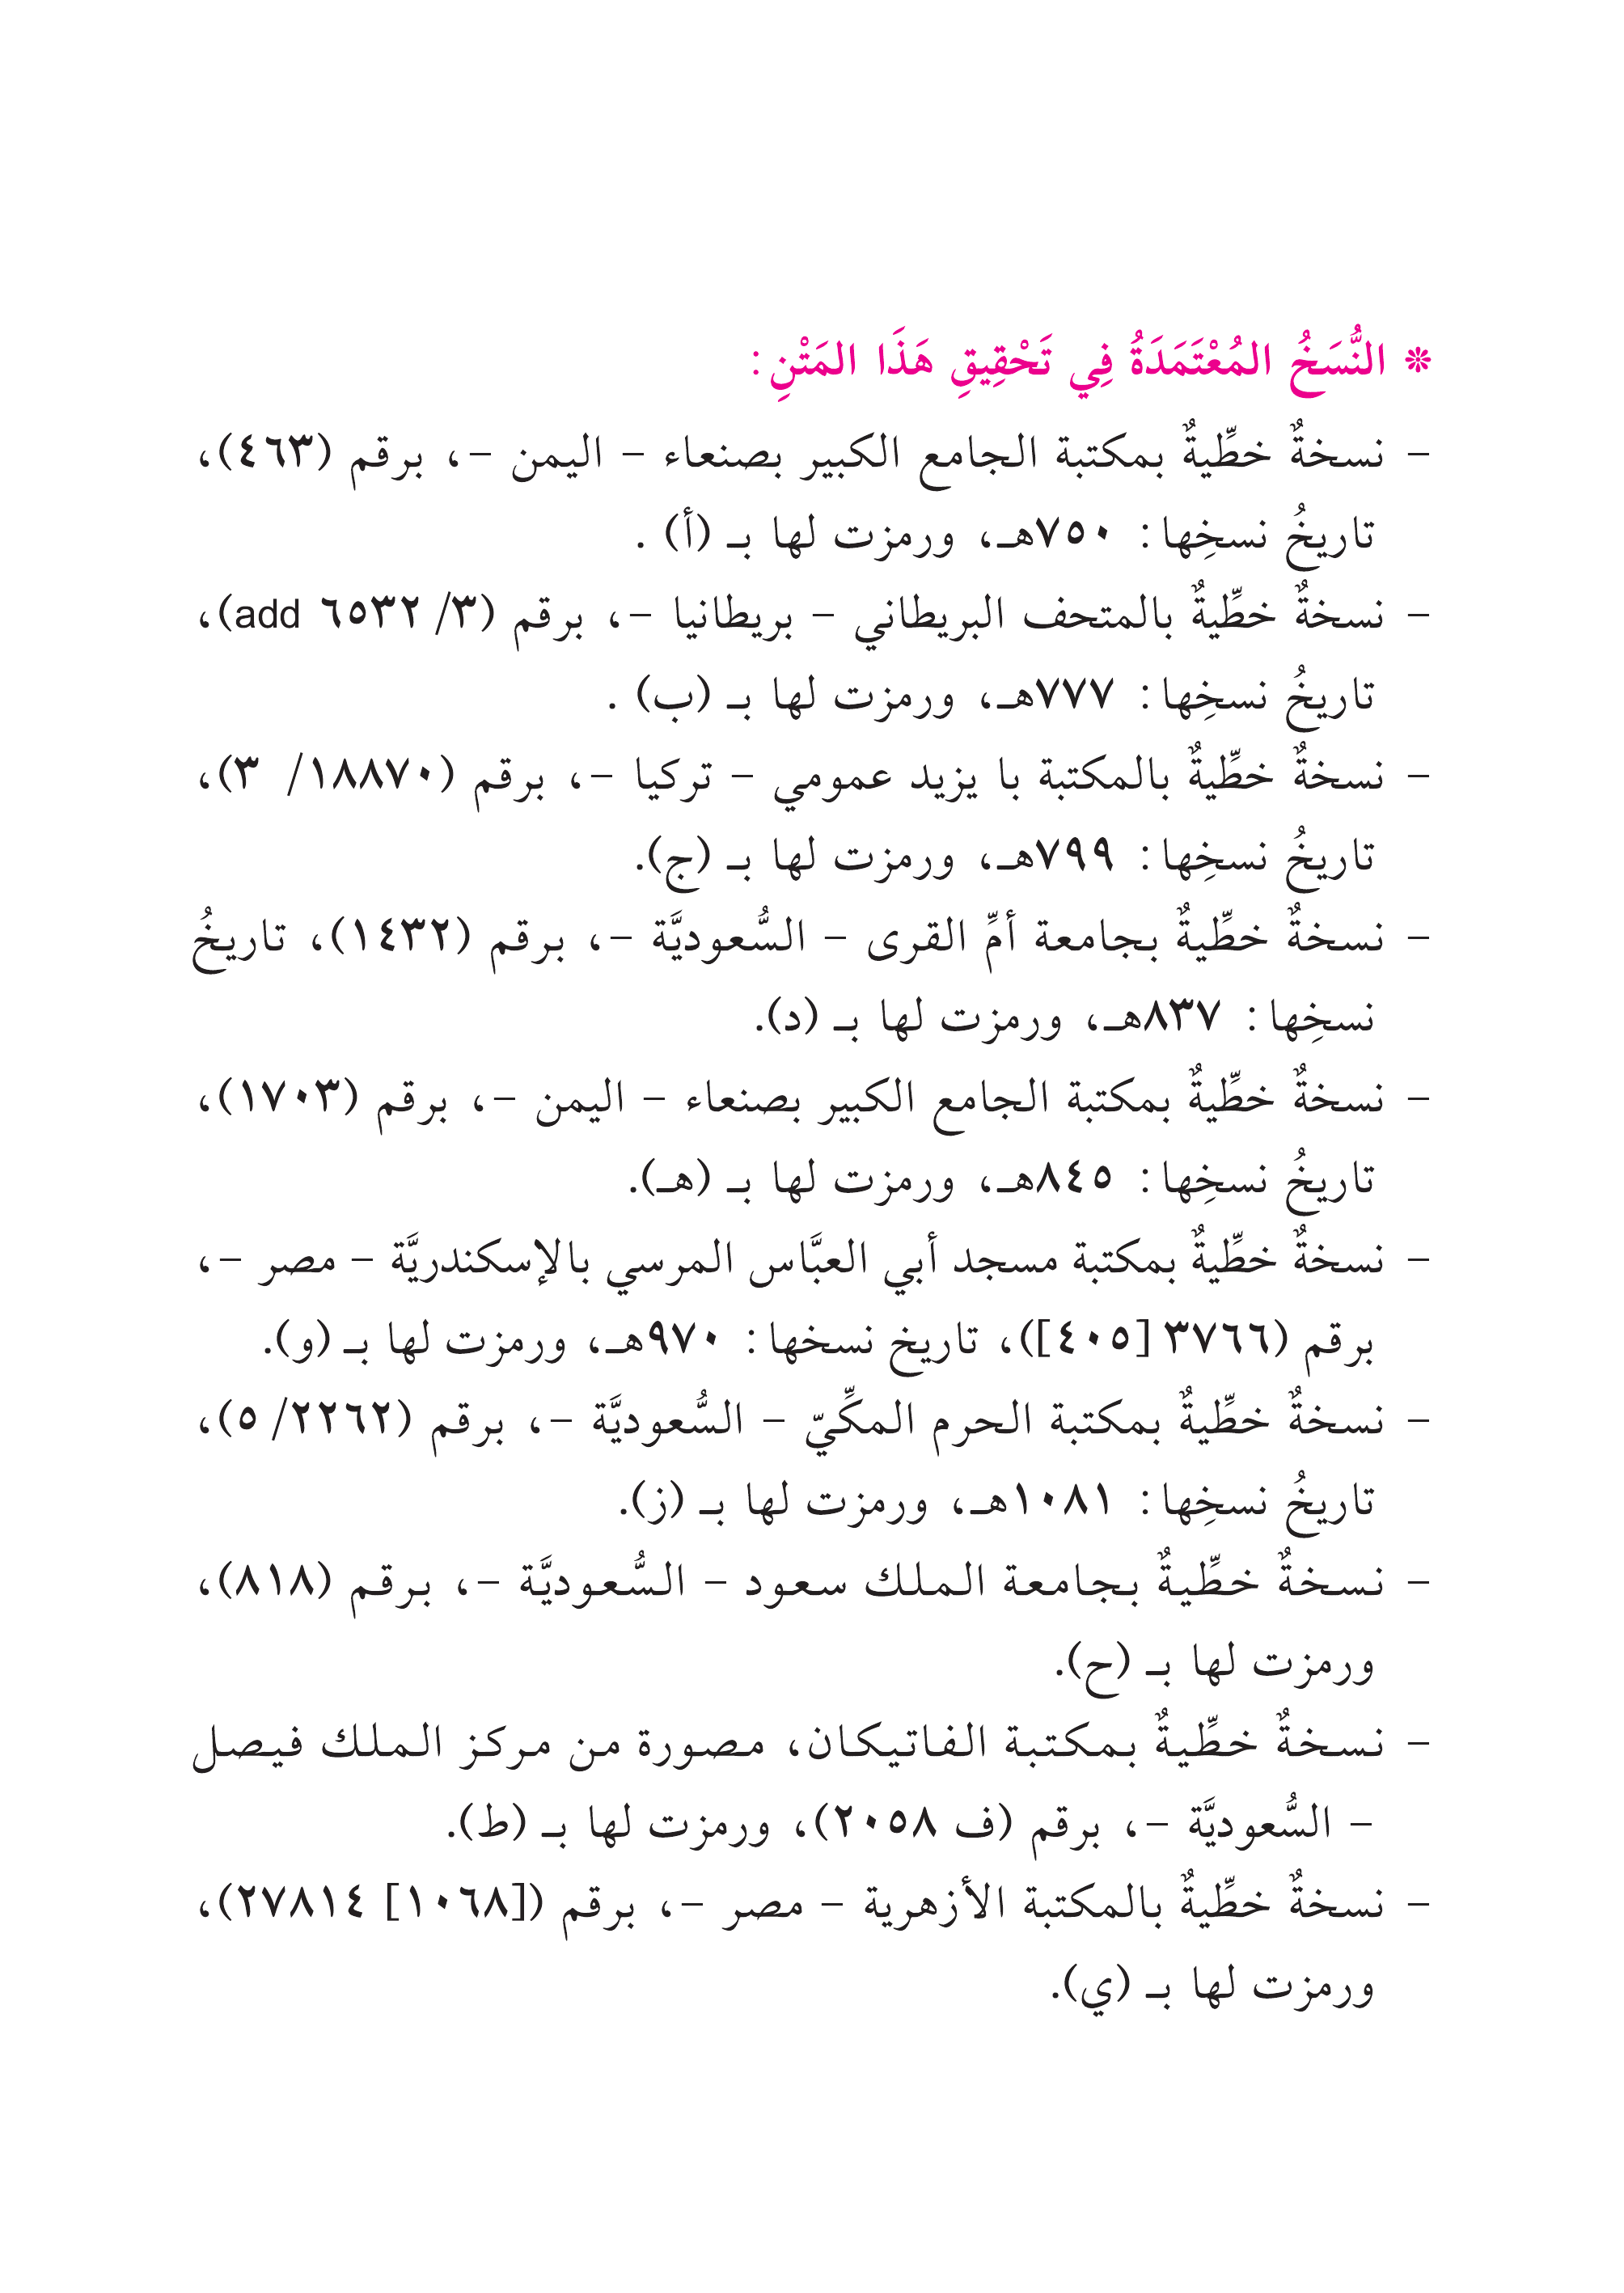 * النُّسَخُ المُعْتَمَدَةُ فِي تَحْقِيقِ هَذَا المَتْنِ:
- نسخةٌ خطِّيةٌ بمكتبة الجامع الكبير بصنعاء - اليمن -، برقم (٤٦٣)،
تاريخُ نسخِها: ٧٥٠هـ، ورمزت لها بـ (أ) .
- نسخةٌ خطِّيةٌ بالمتحف البريطاني - بريطانيا -، برقم (٣/ ٦٥٣٢ add)،
تاريخُ نسخِها: ٧٧٧هـ، ورمزت لها بـ (ب) .
- نسخةٌ خطِّيةٌ بالمكتبة با يزيد عمومي - تركيا -، برقم (١٨٨٧٠/ ٣)،
تاريخُ نسخِها: ٧٩٩هـ، ورمزت لها بـ (ج).
- نسخةٌ خطِّيةٌ بجامعة أمِّ القرى - السُّعوديَّة -، برقم (١٤٣٢)، تاريخُ
نسخِها: ٨٣٧هـ، ورمزت لها بـ (د).
- نسخةٌ خطِّيةٌ بمكتبة الجامع الكبير بصنعاء - اليمن -، برقم (١٧٠٣)،
تاريخُ نسخِها: ٨٤٥هـ، ورمزت لها بـ (هـ).
- نسخةٌ خطِّيةٌ بمكتبة مسجد أبي العبَّاس المرسي بالإسكندريَّة - مصر -،
برقم (٣٧٦٦ [٤٠٥])، تاريخ نسخها: ٩٧٠هـ، ورمزت لها بـ (و).
- نسخةٌ خطِّيةٌ بمكتبة الحرم المكِّيّ - السُّعوديَّة -، برقم (٢٢٦٢/ ٥)،
تاريخُ نسخِها: ١٠٨١هـ، ورمزت لها بـ (ز).
- نسخةٌ خطِّيةٌ بجامعة الملك سعود - السُّعوديَّة -، برقم (٨١٨)،
ورمزت لها بـ (ح).
- نسخةٌ خطِّيةٌ بمكتبة الفاتيكان، مصورة من مركز الملك فيصل
- السُّعوديَّة -، برقم (ف ٢٠٥٨)، ورمزت لها بـ (ط).
- نسخةٌ خطِّيةٌ بالمكتبة الأزهرية - مصر -، برقم ([١٠٦٨] ٢٧٨١٤)،
ورمزت لها بـ (ي).